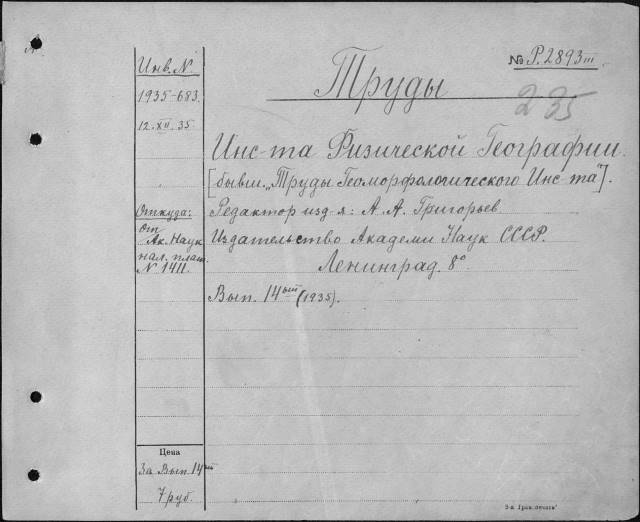 № Р.2893 III
Труды
235
Инв. N.
1935-683.
12.XII.35
Инс-та Физической Географии.
[бывш. „Труды Геоморфологического Инс-та"].
Откуда:
Редактор изд-я: А. А. Григорьев.
от
Ак. Наук
нал. плат.
N 1411.
Издательство Академи Наук СССР.
Ленинград. 8°
Вып. 14ый (1935).
Цена
За Вып 14ый
7 руб.